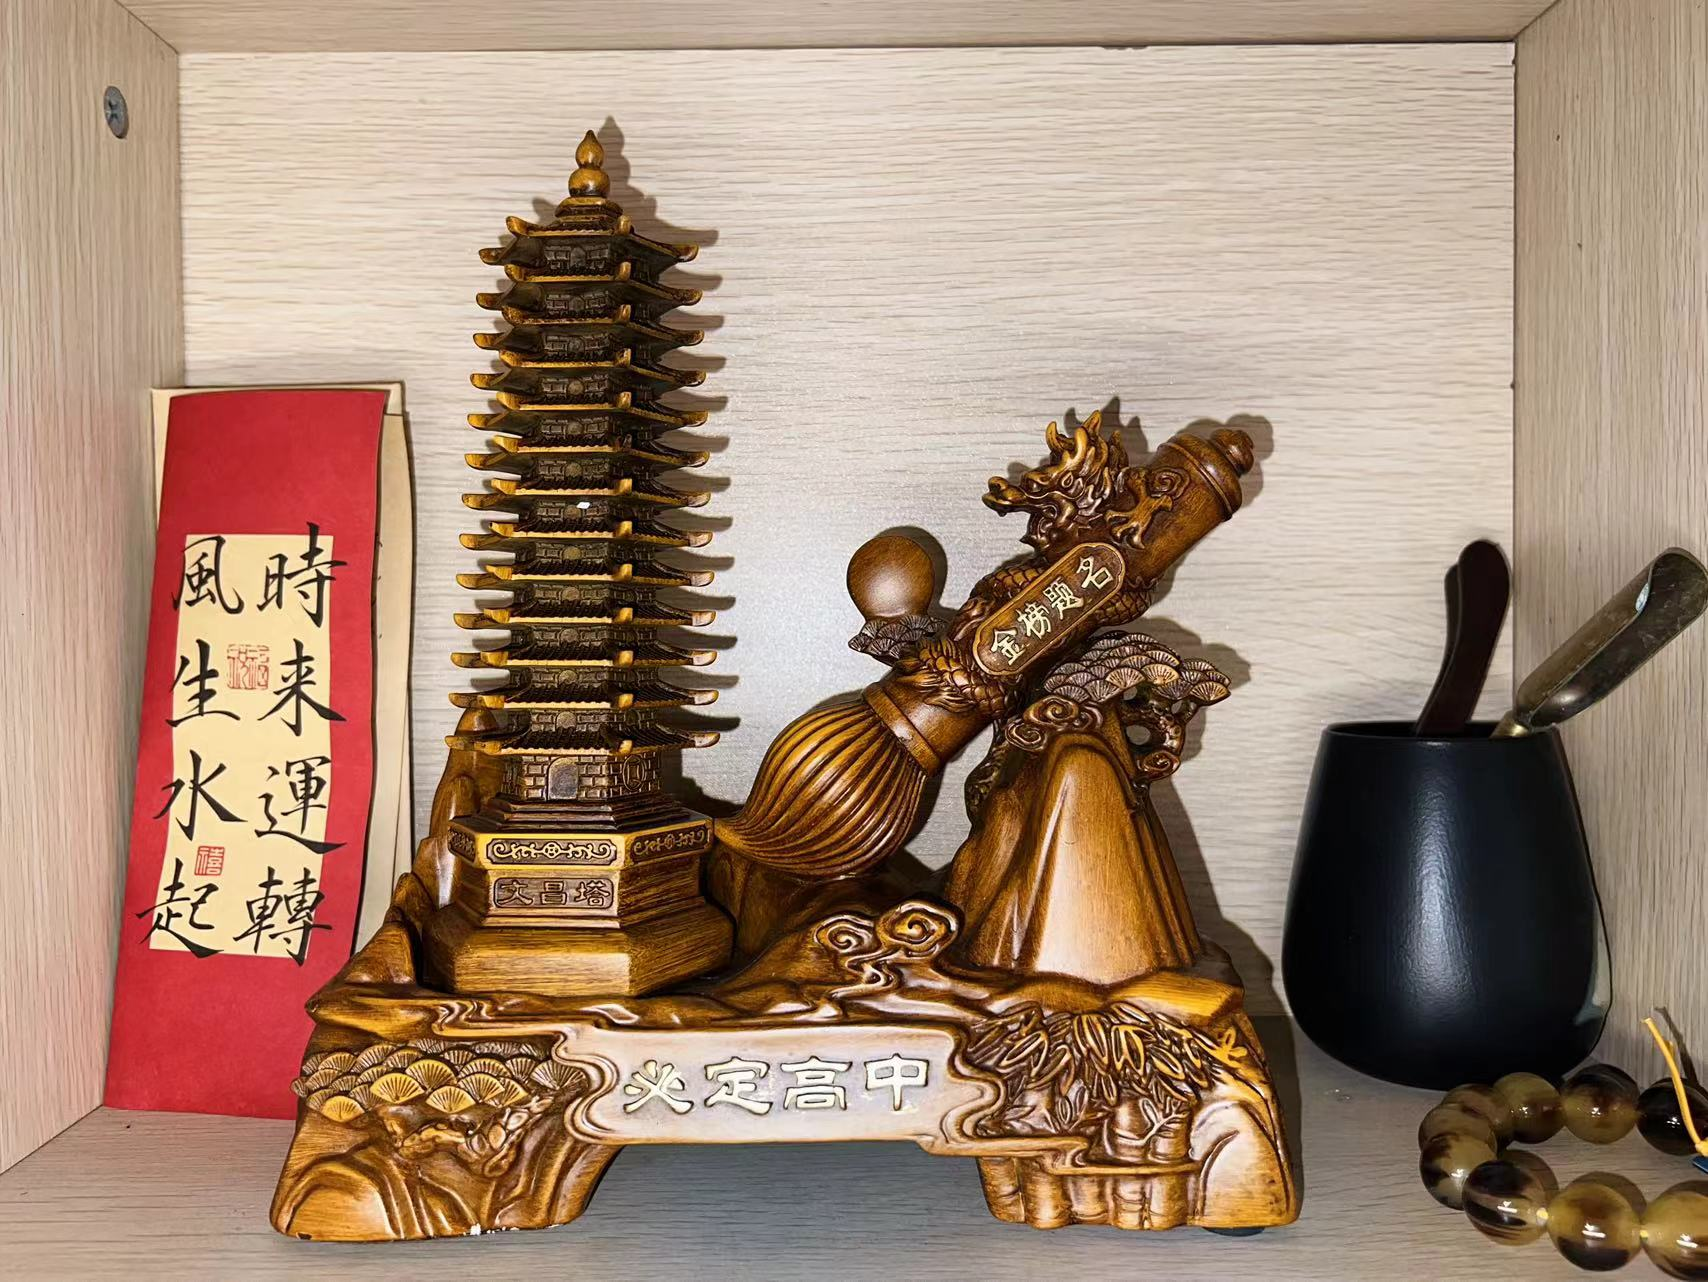 時来運轉
風生水起
禧
金榜题名
文昌塔
必定高中